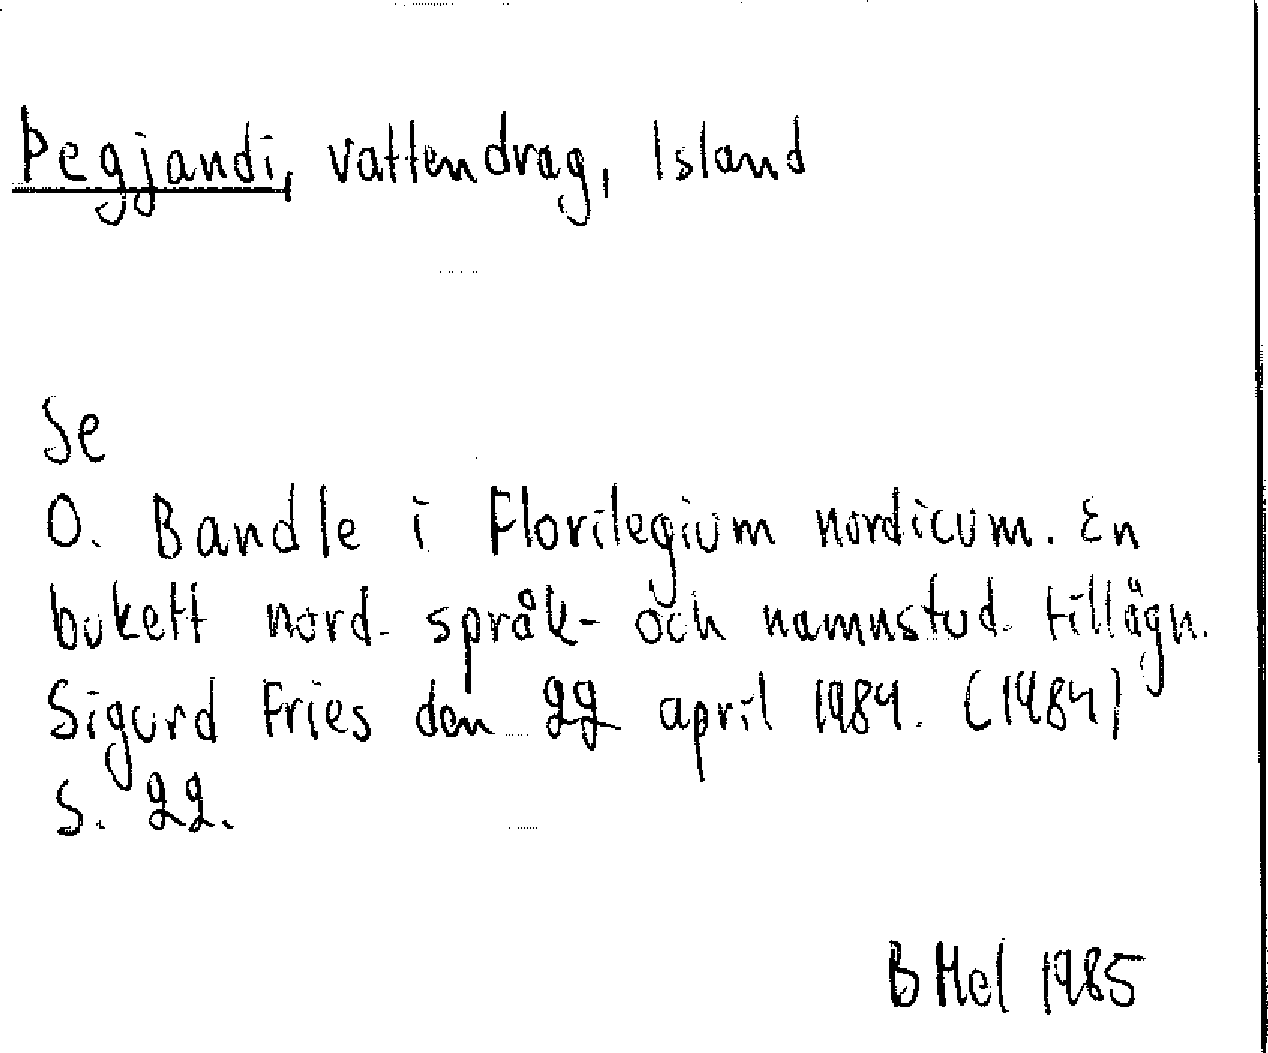 Þegjandi, vattendrag, Island
Se
O. Bandle i Florilegium nordicum. En
bukett nord. språk- och namnstud. tillägn.
Sigurd Fries den 22 april 1984. (1984)
S. 22.
B Hel 1985